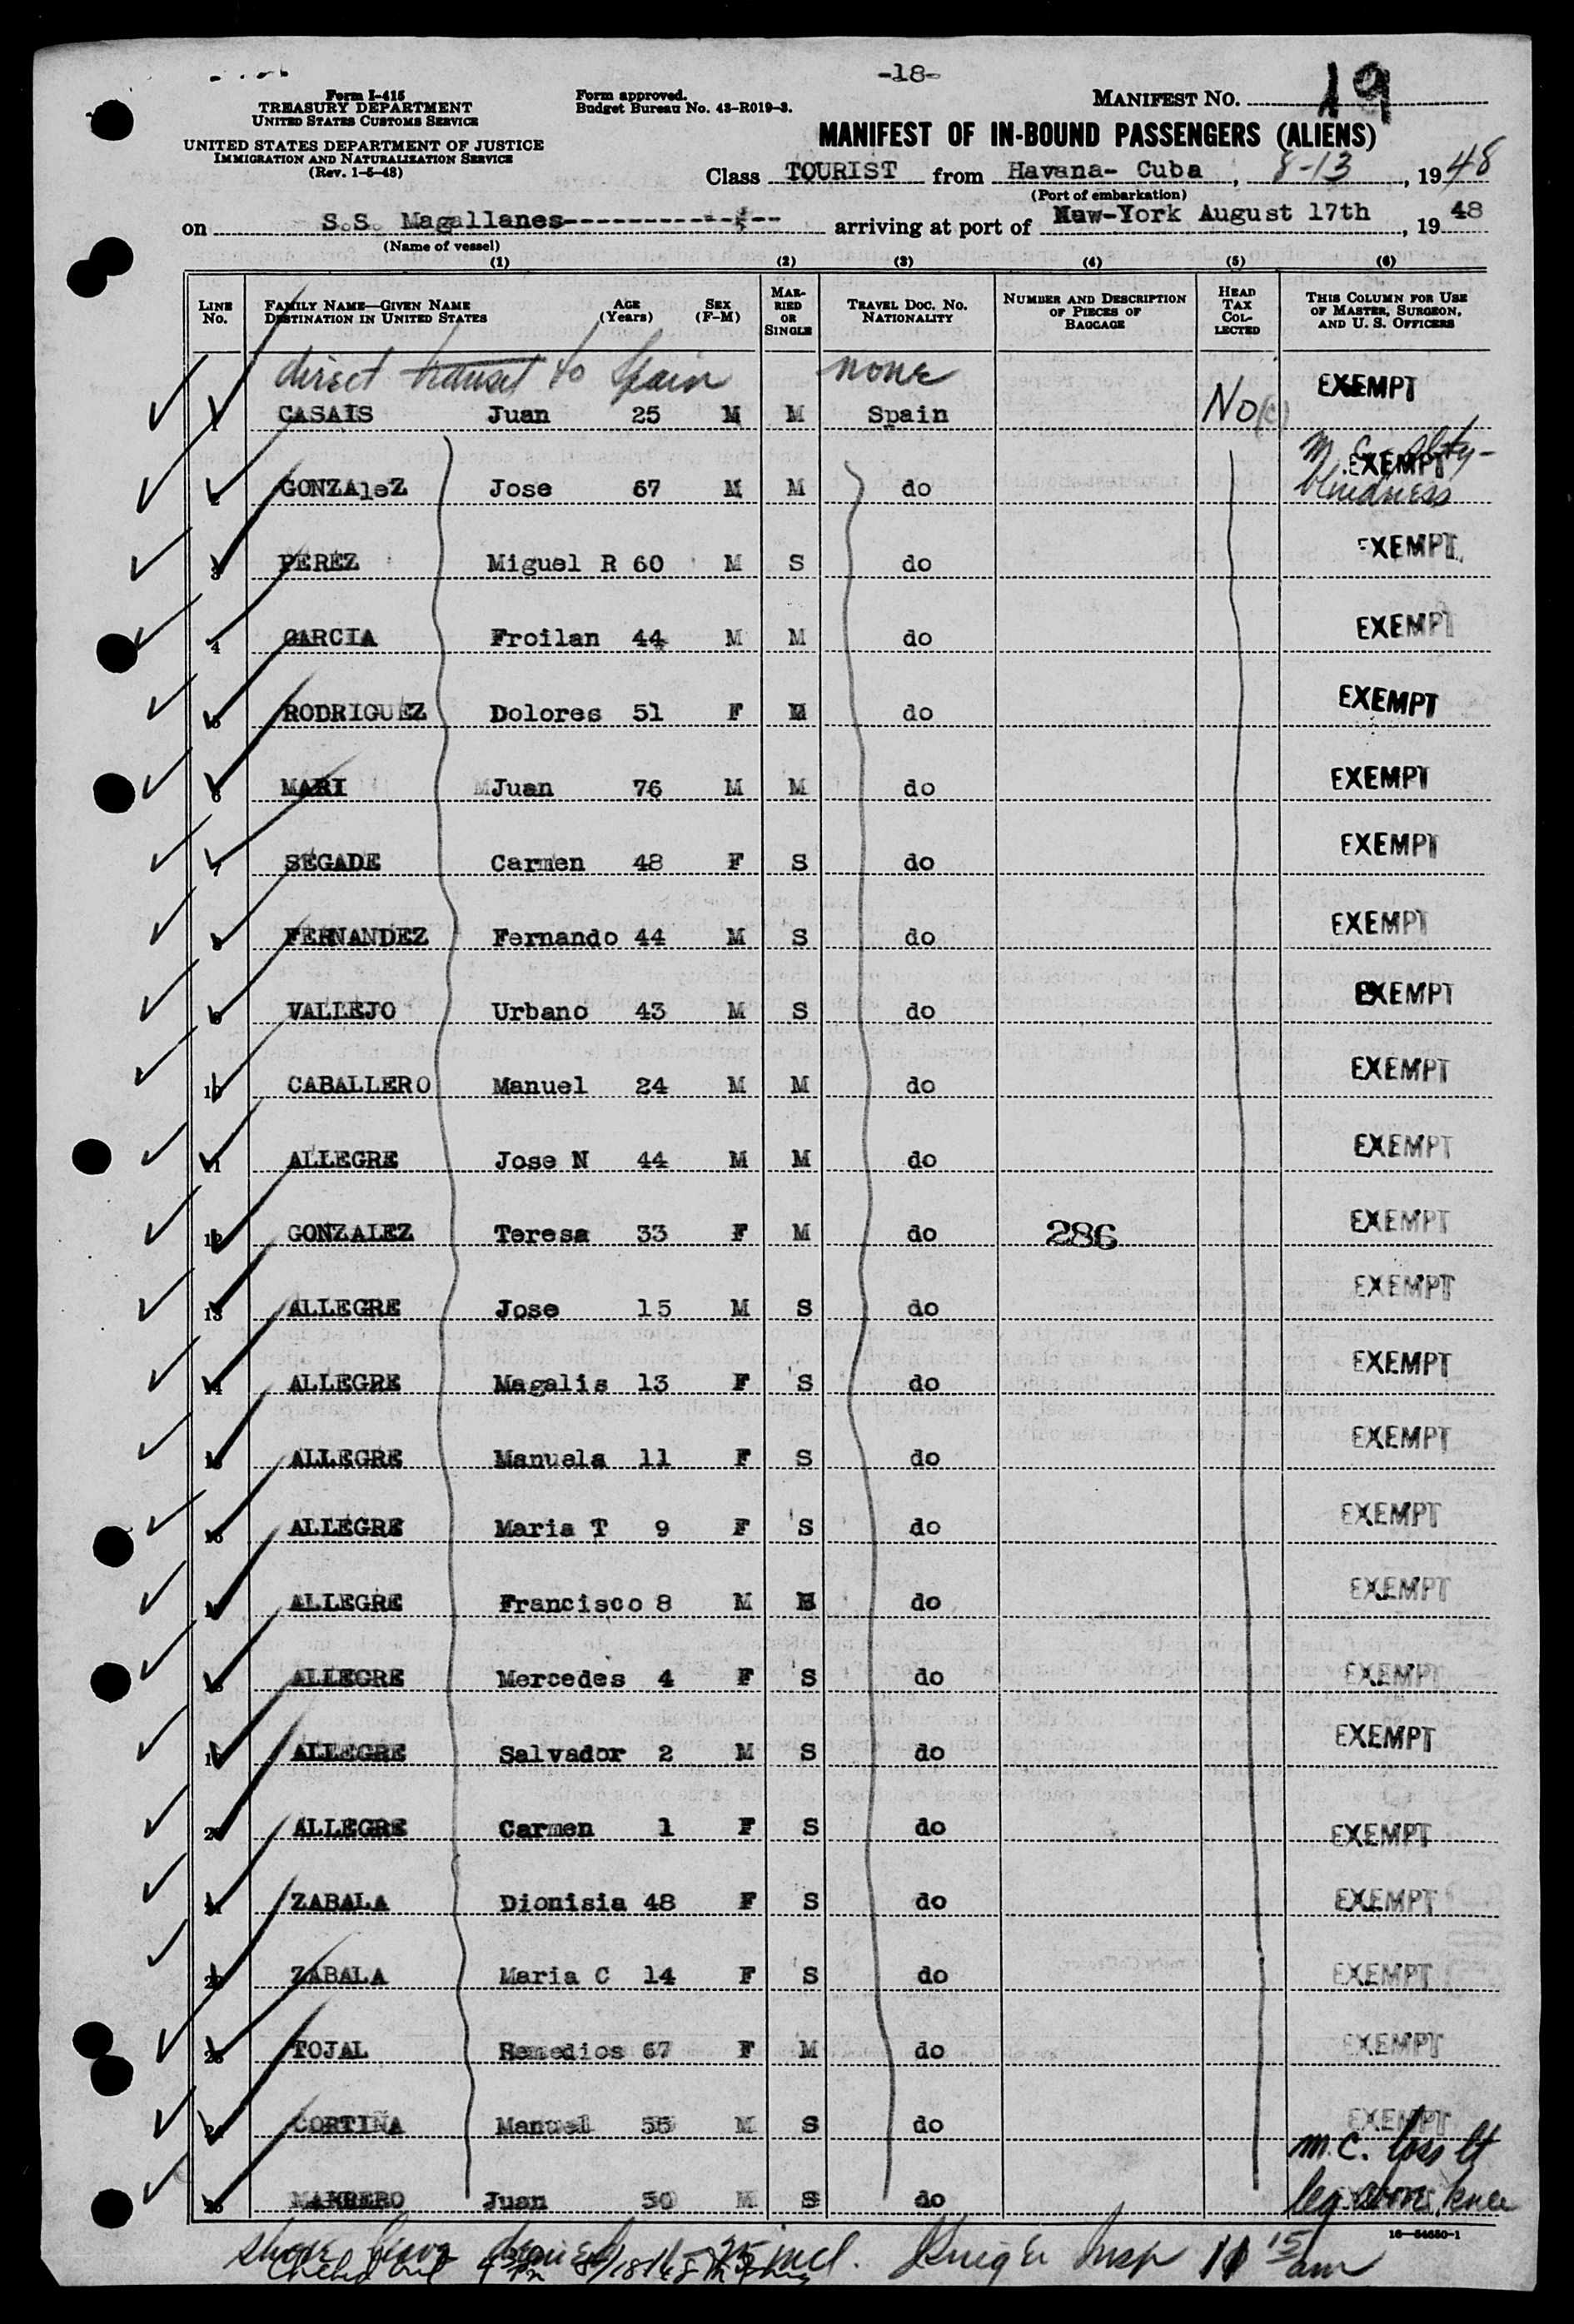 -18-
Form I-415
TREASURY DEPARTMENT
UNITED STATES CUSTOMS SERVICE
UNITED STATES DEPARTMENT OF JUSTICE
IMMIGRATION AND NATURALIZATION SERVICE
(Rev. 1-5-48)
Form approved.
Budget Bureau No. 43-R019-3.
MANIFEST NO. 19
MANIFEST OF IN-BOUND PASSENGERS (ALIENS)
Class TOURIST from Havana- Cuba, 8-13, 1948
(Port of embarkation)
on S.S. Magallanes arriving at port of New-York August 17th, 1948
(Name of vessel)
(1) (2) (3) (4) (5) (6)
LINE NO. FAMILY NAME—GIVEN NAME DESTINATION IN UNITED STATES AGE (Years) SEX (F-M) MARRIED OR SINGLE TRAVEL DOC. NO. NATIONALITY NUMBER AND DESCRIPTION OF PIECES OF BAGGAGE HEAD TAX COLLECTED THIS COLUMN FOR USE OF MASTER, SURGEON, AND U. S. OFFICERS
direct transit to Spain none
1 CASAIS Juan 25 M M Spain No EXEMPT
2 GONZAleZ Jose 67 M M do EXEMPT M.C. blindness
3 PEREZ Miguel R 60 M S do EXEMPT
4 GARCIA Froilan 44 M M do EXEMPT
5 RODRIGUEZ Dolores 51 F M do EXEMPT
6 MARI Juan 76 M M do EXEMPT
7 SEGADE Carmen 48 F S do EXEMPT
8 FERNANDEZ Fernando 44 M S do EXEMPT
9 VALLEJO Urbano 43 M S do EXEMPT
10 CABALLERO Manuel 24 M M do EXEMPT
11 ALLEGRE Jose N 44 M M do EXEMPT
12 GONZALEZ Teresa 33 F M do 286 EXEMPT
13 ALLEGRE Jose 15 M S do EXEMPT
14 ALLEGRE Magalis 13 F S do EXEMPT
15 ALLEGRE Manuela 11 F S do EXEMPT
16 ALLEGRE Maria T 9 F S do EXEMPT
17 ALLEGRE Francisco 8 M S do EXEMPT
18 ALLEGRE Mercedes 4 F S do EXEMPT
19 ALLEGRE Salvador 2 M S do EXEMPT
20 ALLEGRE Carmen 1 F S do EXEMPT
21 ZABALA Dionisia 48 F S do EXEMPT
22 ZABALA Maria C 14 F S do EXEMPT
23 TOJAL Remedios 67 F M do EXEMPT
24 CORTIÑA Manuel 55 M S do EXEMPT
25 MARRERO Juan 50 M S do M.C. loss lt leg above knee
16-54650-1
shore leave denied 1-25 incl. Insp 11 15 am